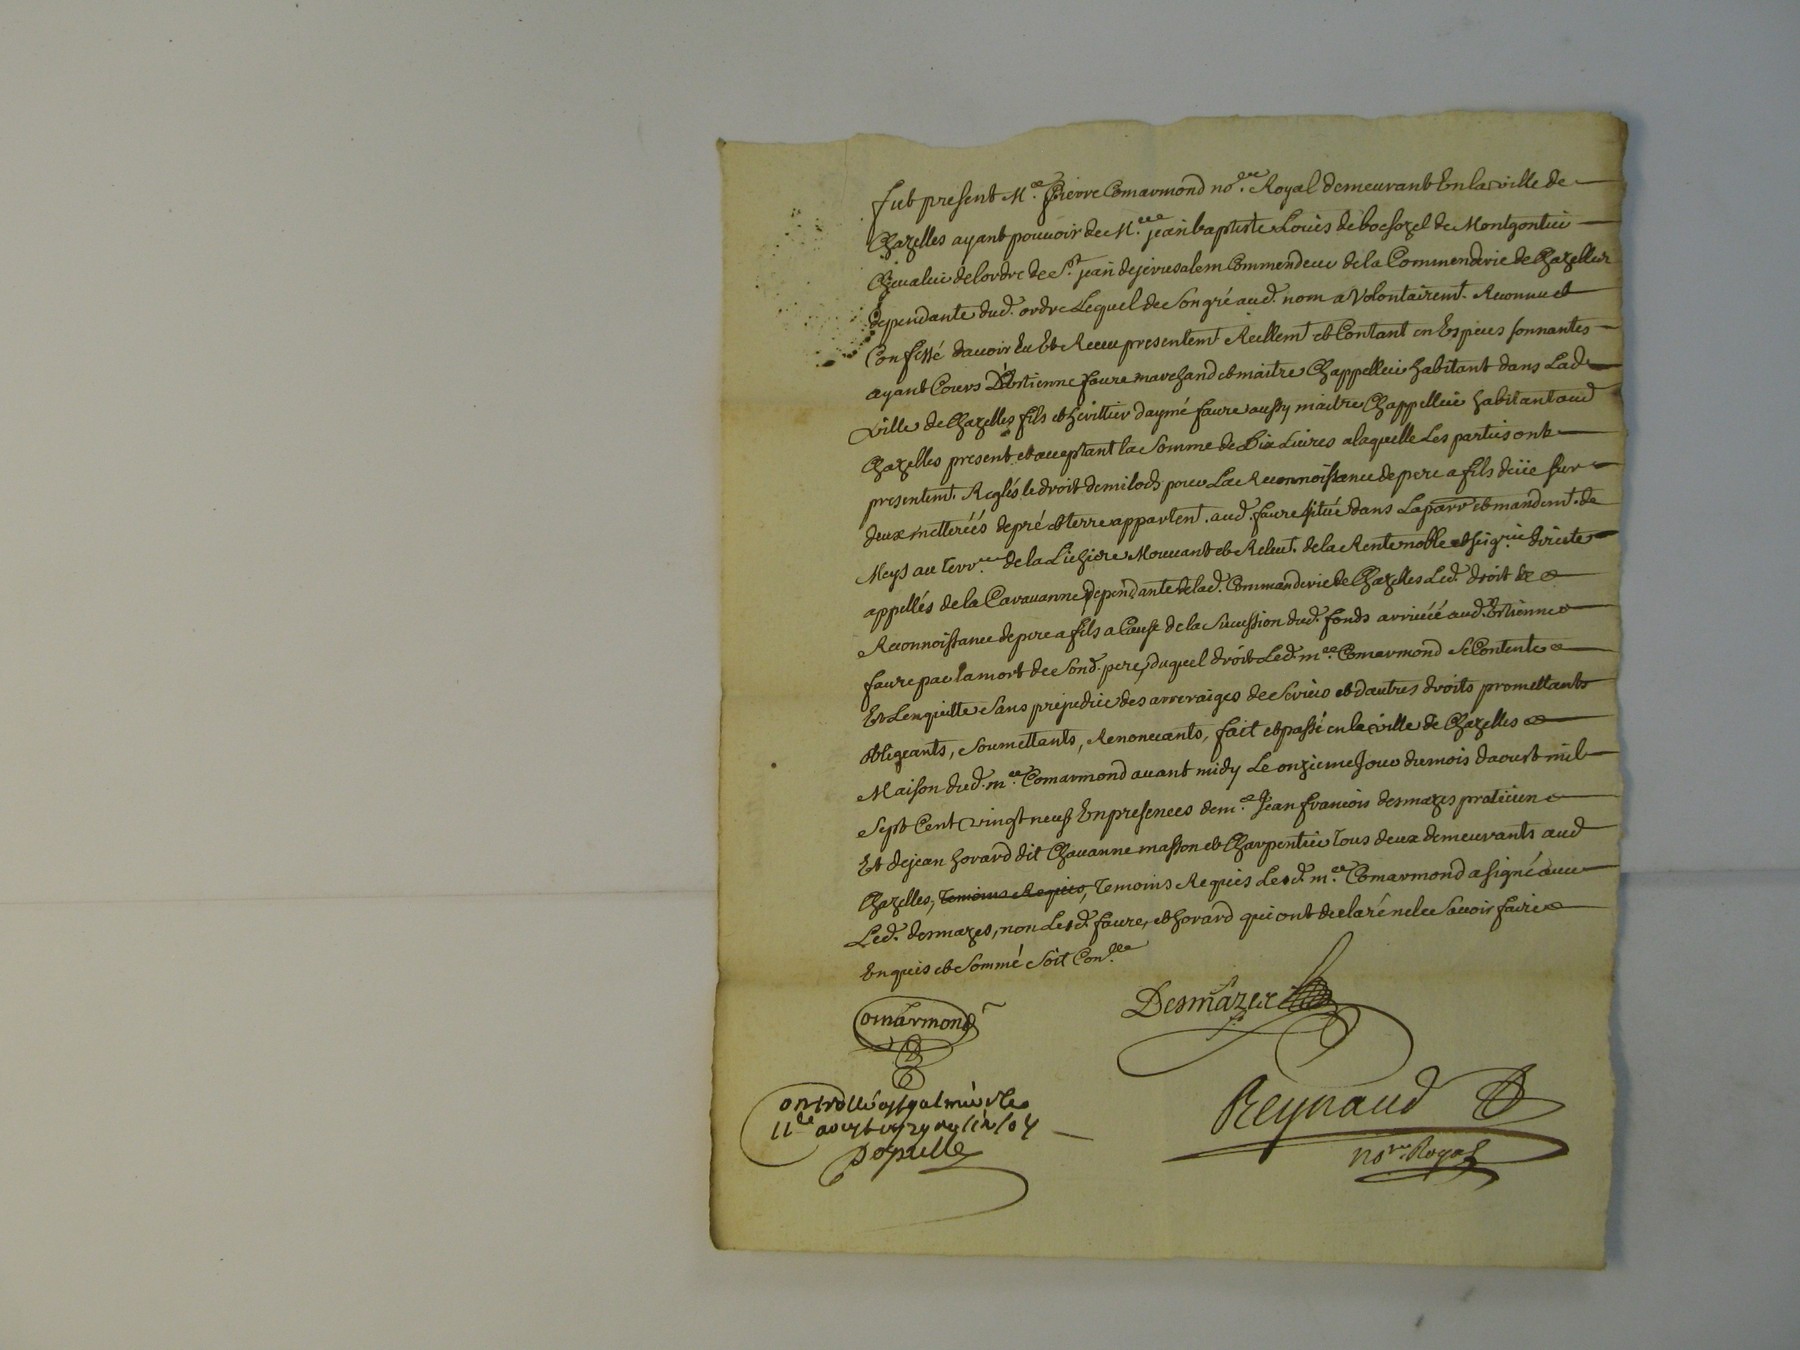 fut present M.e Pierre Comarmond no.re Royal demeurant En la ville de
Chazelles ayant pouvoir de M.re jean baptiste Louis de bocsozel de Montgontier
Chevalier de lordre de S.t jean de jerusalem Commendeur de la Commenderie de Chazelles
dependante dud. ordre Lequel de Son gré aud. nom a Volontairem.t Reconnu et
Confessé davoir Eu Et Receu presentem.t Reellem.t et Contant en Especes sonnantes
ayant Cours D'Estienne faure marchand et maitre Chappellier habitant dans Lad.
ville de Chazelles fils et heritier daymé faure aussy maitre Chappellier habitant aud.
Chazelles present et acceptant la Somme de Dix Livres a laquelle Les parties ont
presentem.t Reglés le droit de mi lods pour La Reconnoissance de pere a fils deüe sur
deux metterées de pré et terre apparten.t aud. faure situé dans La parr. et mandem.t de
Meys au terr.re de la Lichere Mouvant et Relev.t de la Rente noble et seig.rie directe
appellés de la Caravanne dependante de lad. Commanderie de Chazelles Led. droit de
Reconnoissance de pere a fils a Cause de la Succession dud. fonds arrivée aud. Estienne
faure par la mort de Sond. pere, duquel droit Led. m.re Comarmond Se Contente
Et Lenquitte Sans prejudice des arreraiges de Servis et dautres droits promettants
obligeants, Soumettants, Renonceants, fait et passé en la ville de Chazelles
Maison dud. m.re Comarmond avant midy Le onzieme Jour du mois daoust mil
Sept Cent vingt neuf En presences de m.e Jean francois desmazes praticien
Et de jean horard dit Chavanne masson et Charpentier Tous deux demeurants aud.
Chazelles, Temoins Requis, Temoins Requis Led. m.re Comarmond a signé avec
Led. desmazes, non Led. faure, et horard qui ont declaré ne le Savoir faire
Enquis et Sommé Soit Con.llé
Comarmond
Desmazes
Controllé a st galmier le
11.e aoust
Reynaud
no.re Royal